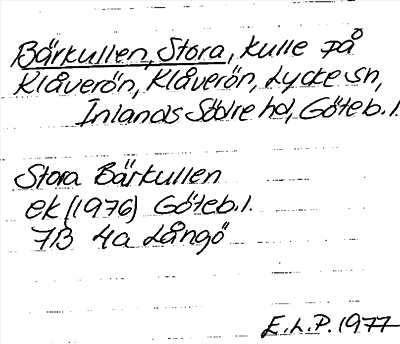 Bärkullen, Stora, kulle på
Klåverön, Klåverön, Lycke sn,
Inlands Södre hd, Göteb. l.
Stora Bärkullen
ek (1976) Göteb. l.
7B 4a Långö
E.L.P. 1977